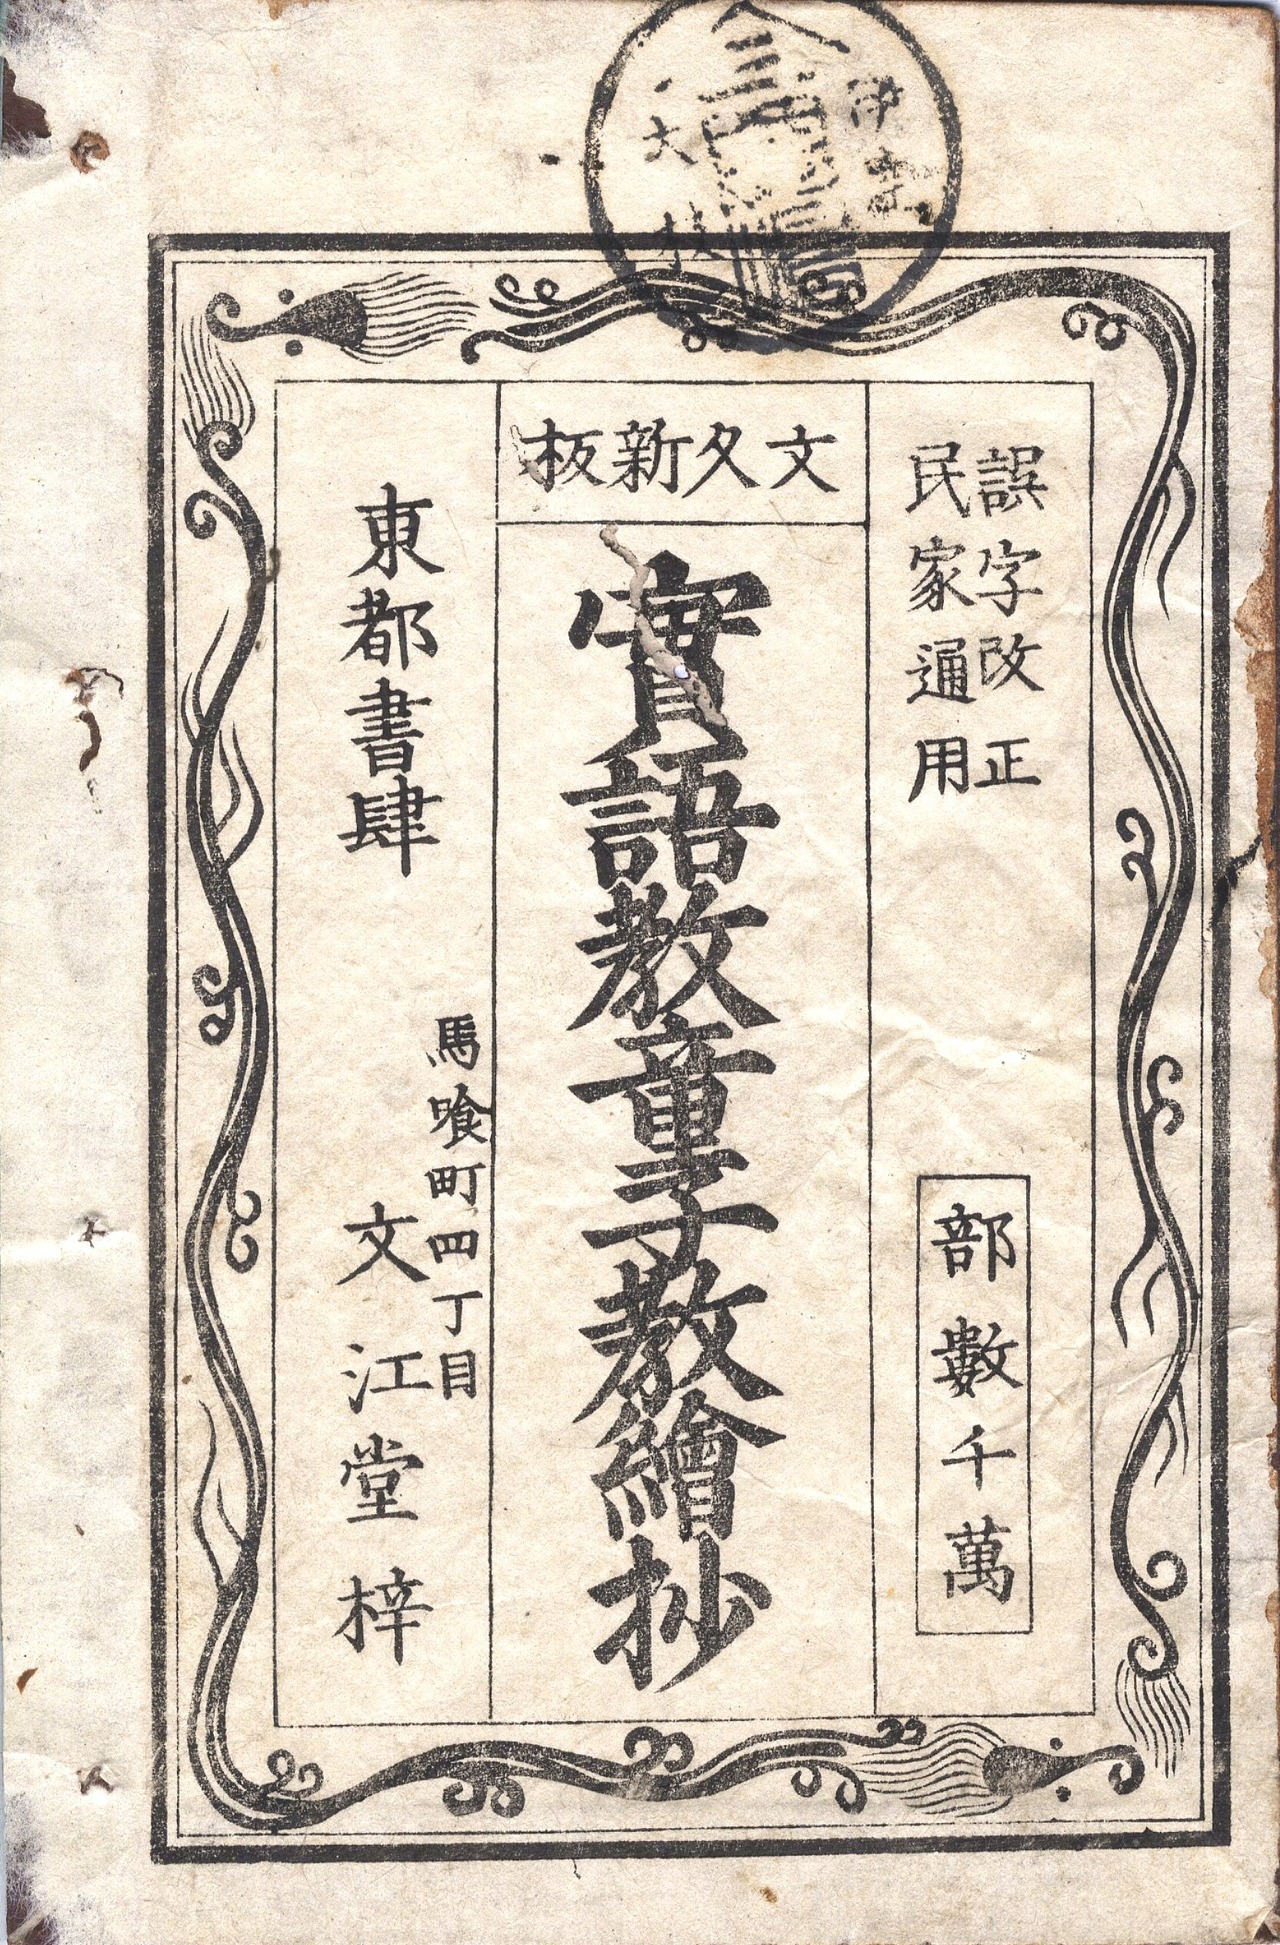 文久新板
誤字改正
民家通用
部數千萬
實語教童子教繪抄
東都書肆
馬喰町四丁目
文江堂梓